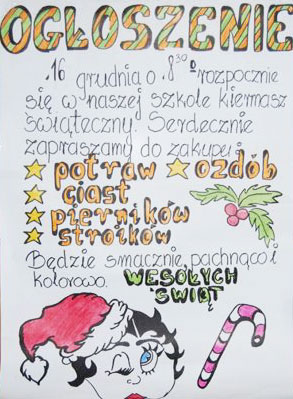 OGŁOSZENIE
.16 grudnia o 8³⁰ rozpocznie
się w naszej szkole kiermasz
świąteczny. Serdecznie
zapraszamy do zakupu
potraw ozdób
ciast
pierników
stroików
Będzie smacznie, pachnąco i
kolorowo. WESOŁYCH
ŚWIĄT